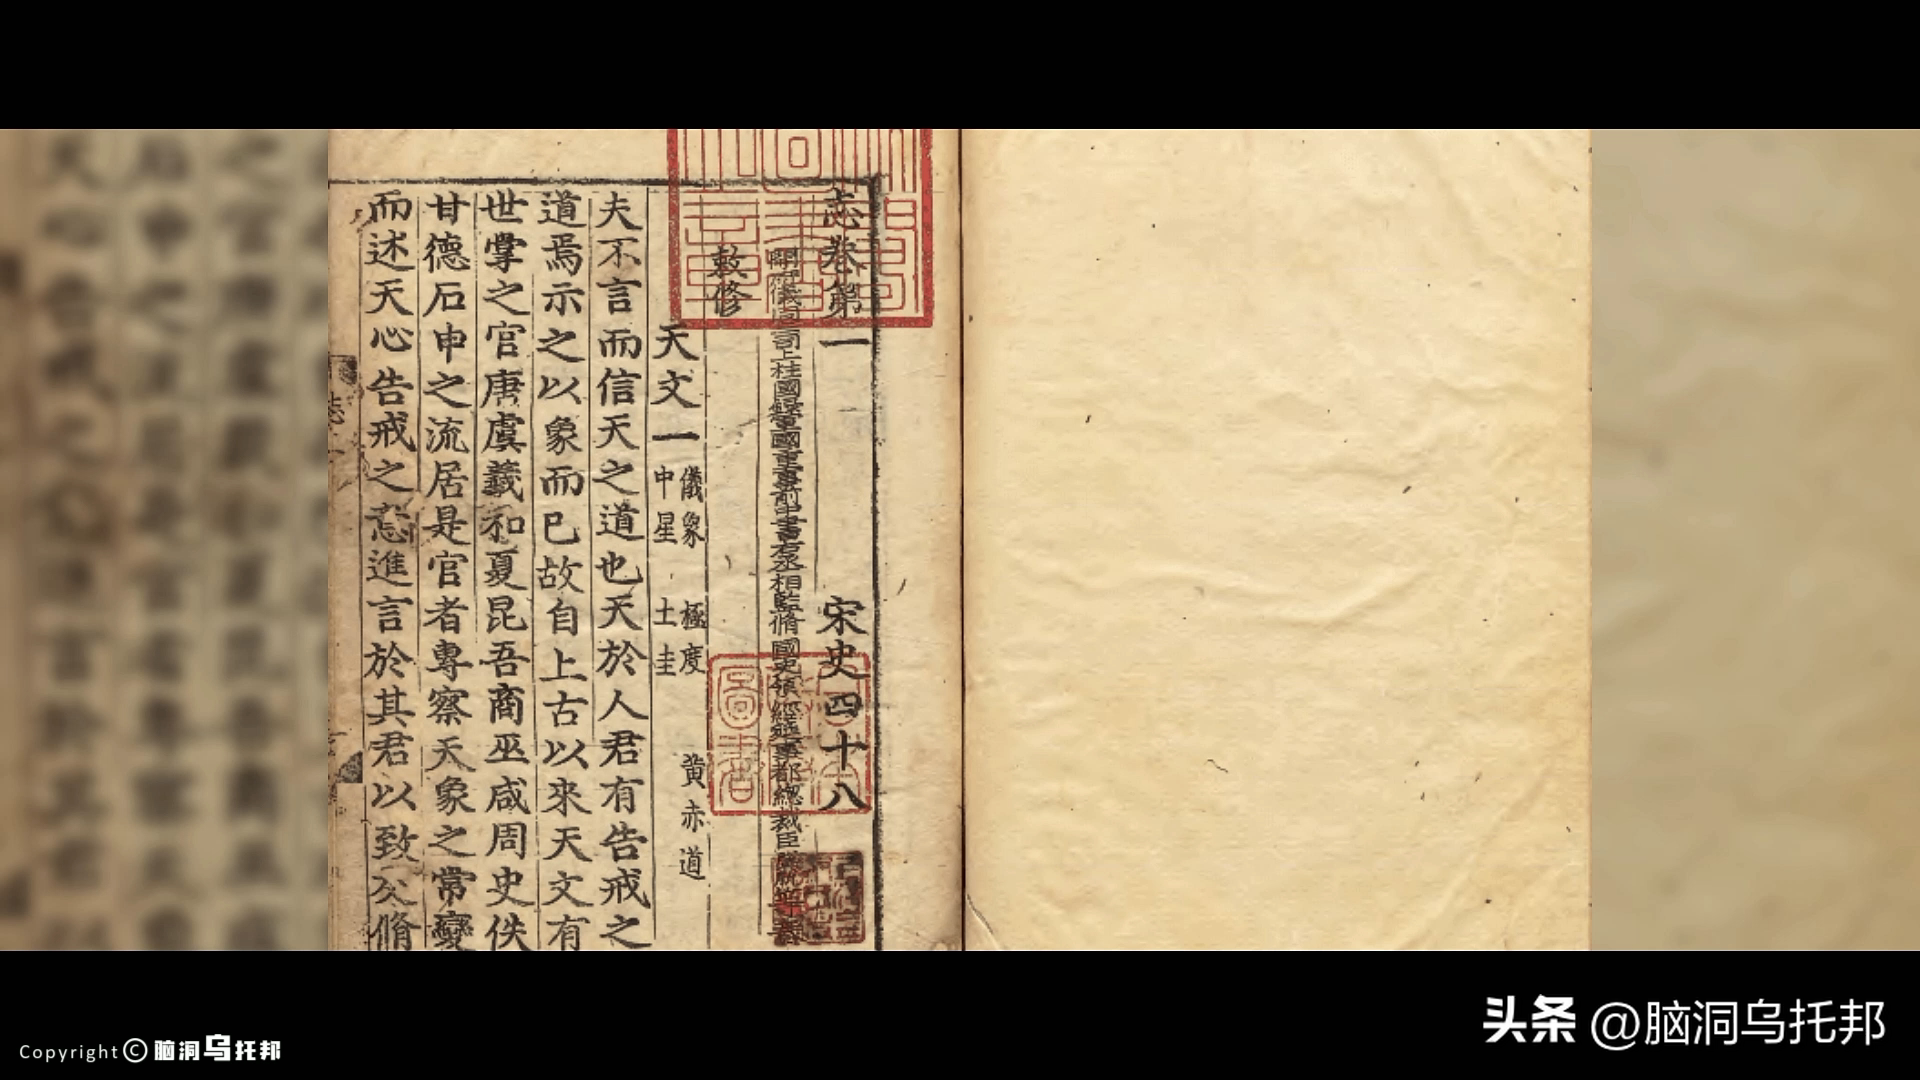 志卷第一
宋史四十八
開府儀同司上柱國錄軍國重事前中書右丞相監脩國史領經筵事都總裁臣脫脫等
敕修
天文一
儀象
極度
黃赤道
中星
土圭
夫不言而信天之道也天於人君有告戒之
道焉示之以象而已故自上古以來天文有
世掌之官唐虞羲和夏昆吾商巫咸周史佚
甘德石申之流居是官者專察天象之常變
而述天心告戒之意進言於其君以致交脩
Copyright © 脑洞乌托邦
头条 @脑洞乌托邦